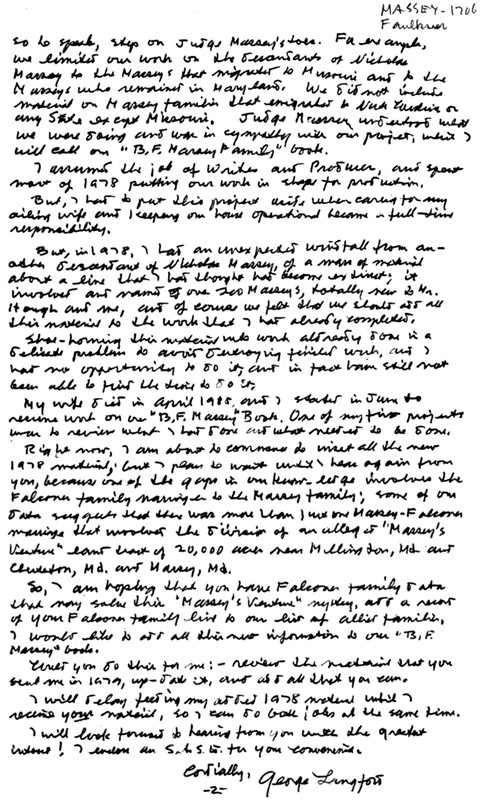 MASSEY-1706
Faulkner
so to speak, step on Judge Massey's toes. For example,
we limited our work on the descendants of Nicholas
Massey to the Masseys that migrated to Missouri and to the
Masseys who remained in Maryland. We did not include
material on Massey families that emigrated to
any State except Missouri. Judge Massey understood what
we were doing and was in sympathy with our project, which I
will call our "B.F. Massey Family" book.
I assumed the job of Writer and Producer, and spent
most of 1978 putting our work in shape for production.
But, I had to put this project aside when caring for my
ailing wife and keeping our house operational became a full-time
responsibility.
But, in 1978, I had an unexpected windfall from an-
other descendant of Nicholas Massey, of a mass of material
about a line that I had thought had become extinct; it
involved and named of one 200 Masseys, totally new to Mr.
Hough and me, and of course we felt that we should add all
this material to the work that I had already completed.
Shoe-horning this material into work already done is a
delicate problem to avoid destroying finished work, and I
had no opportunity to do it, and in fact have still not
been able to find the time to do it.
My wife died in April 1985, and I started in June to
resume work on our "B.F. Massey" Book. One of my first projects
was to review what I had done and what needed to be done.
Right now, I am about to commence to insert all the new
1978 material, but I plan to wait until I hear again from
you, because one of the gaps in our knowledge involves the
Falconer family marriages to the Massey family; some of our
data suggests that there was more than just one Massey-Falconer
marriage that involved the division of an alleged "Massey's
Venture" land tract of 20,000 acres near Millington, Md. and
Md. and Massey, Md.
So, I am hoping that you have Falconer family data
that may solve this "Massey's Venture" mystery, add a record
of your Falconer family line to our list of allied families.
I would like to add all this new information to our "B.F.
Massey" book.
Could you do this for me:- review the material that you
sent me in 1979, up-date it, and add all that you can.
I will delay feeding my added 1978 material until I
receive your material, so I can do both jobs at the same time.
I will look forward to hearing from you with the greatest
interest! I enclose an S.A.S.E. for your convenience.
Cordially, George Langford
-2-